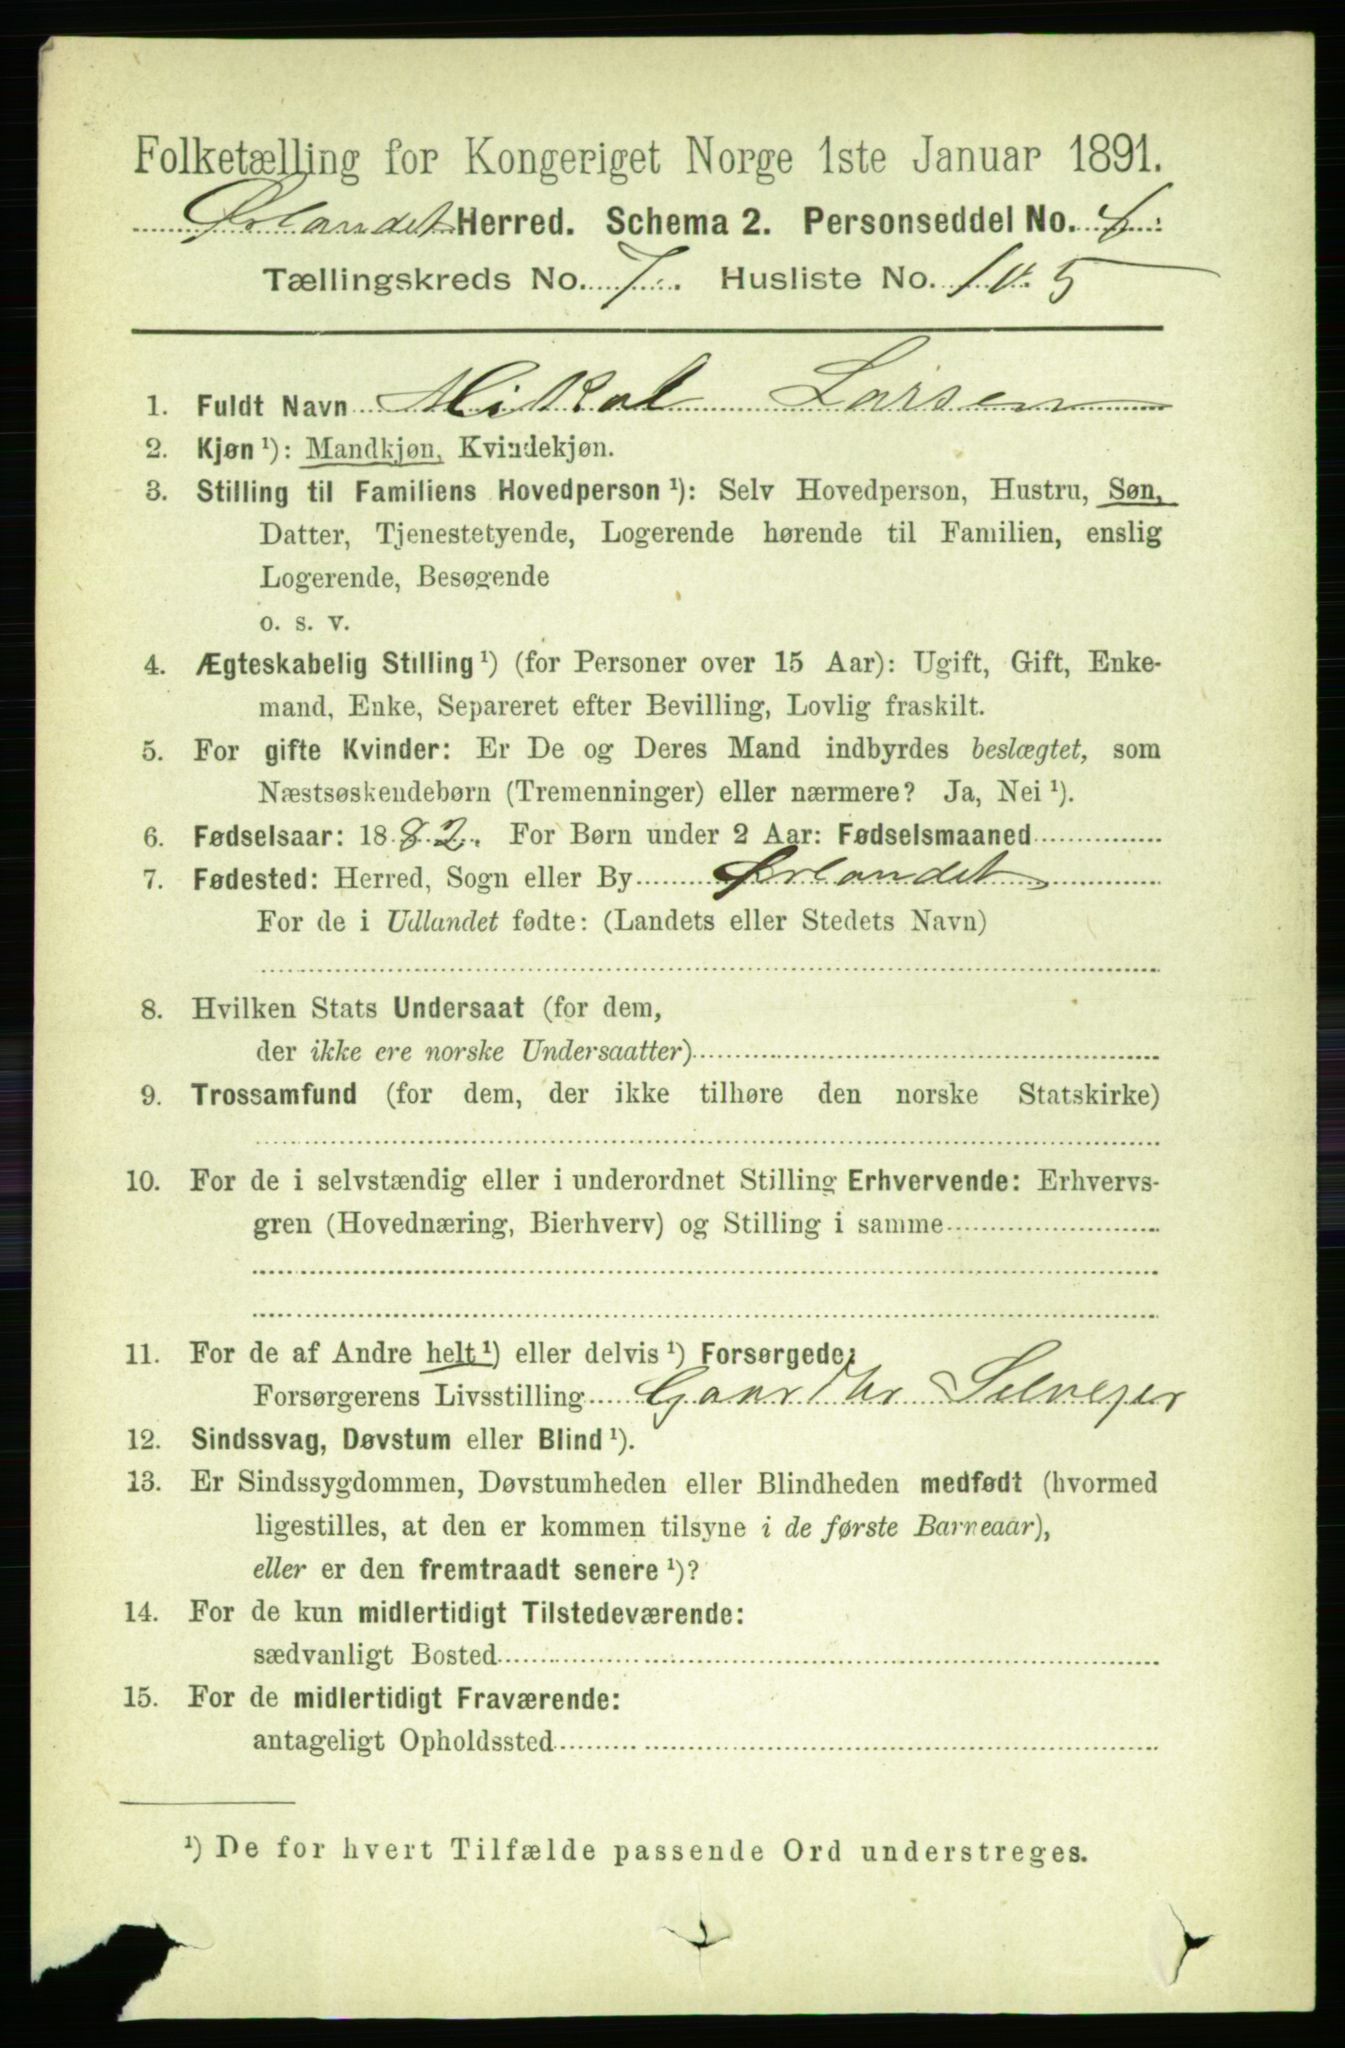 Folketælling for Kongeriget Norge 1ste Januar 1891.
Ørlandet Herred. Schema 2. Personseddel No.
Tællingskreds No. 7. Husliste No. 105
1. Fuldt Navn Mikal Larsen
2. Kjøn ¹): Mandkjøn, Kvindekjøn.
3. Stilling til Familiens Hovedperson ¹): Selv Hovedperson, Hustru, Søn,
Datter, Tjenestetyende, Logerende hørende til Familien, enslig
Logerende, Besøgende
o. s. v.
4. Ægteskabelig Stilling ¹) (for Personer over 15 Aar): Ugift, Gift, Enke-
mand, Enke, Separeret efter Bevilling, Lovlig fraskilt.
5. For gifte Kvinder: Er De og Deres Mand indbyrdes beslægtet, som
Næstsøskendebørn (Tremenninger) eller nærmere? Ja, Nei ¹).
6. Fødselsaar: 1882. For Børn under 2 Aar: Fødselsmaaned
7. Fødested: Herred, Sogn eller By Ørlandet
For de i Udlandet fødte: (Landets eller Stedets Navn)
8. Hvilken Stats Undersaat (for dem,
der ikke ere norske Undersaatter)
9. Trossamfund (for dem, der ikke tilhøre den norske Statskirke)
10. For de i selvstændig eller i underordnet Stilling Erhvervende: Erhvervs-
gren (Hovednæring, Bierhverv) og Stilling i samme
11. For de af Andre helt ¹) eller delvis ¹) Forsørgede:
Forsørgerens Livsstilling Gaardbr Selveier
12. Sindssvag, Døvstum eller Blind ¹).
13. Er Sindssygdommen, Døvstumheden eller Blindheden medfødt (hvormed
ligestilles, at den er kommen tilsyne i de første Barneaar),
eller er den fremtraadt senere ¹)?
14. For de kun midlertidigt Tilstedeværende:
sædvanligt Bosted
15. For de midlertidigt Fraværende:
antageligt Opholdssted
¹) De for hvert Tilfælde passende Ord understreges.